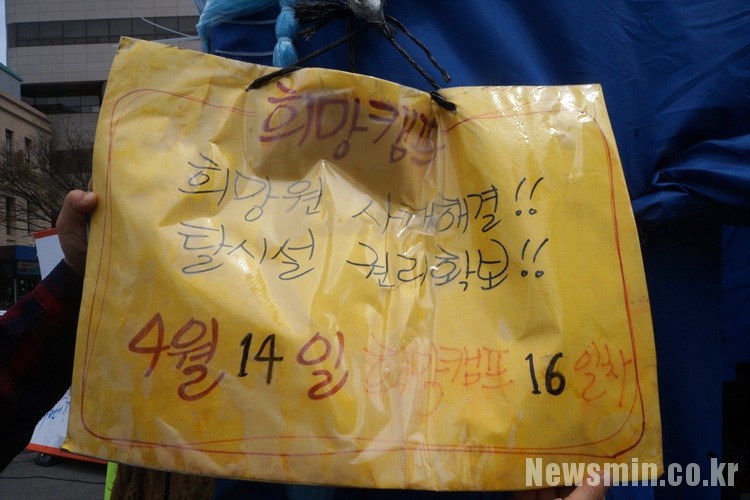 희망캠프
희망원 사태해결!!
탈시설 권리확보!!
4월 14일 희망캠프 16일차
Newsmin.co.kr